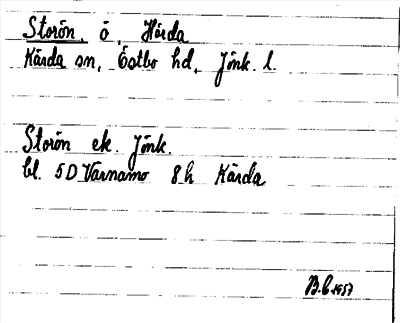 Storön, ö, Hårda
Kärda sn, Östbo hd, Jönk. l.
Storön ek. Jönk.
bl. 5D Värnamo 8h Kärda
B.C. 1957